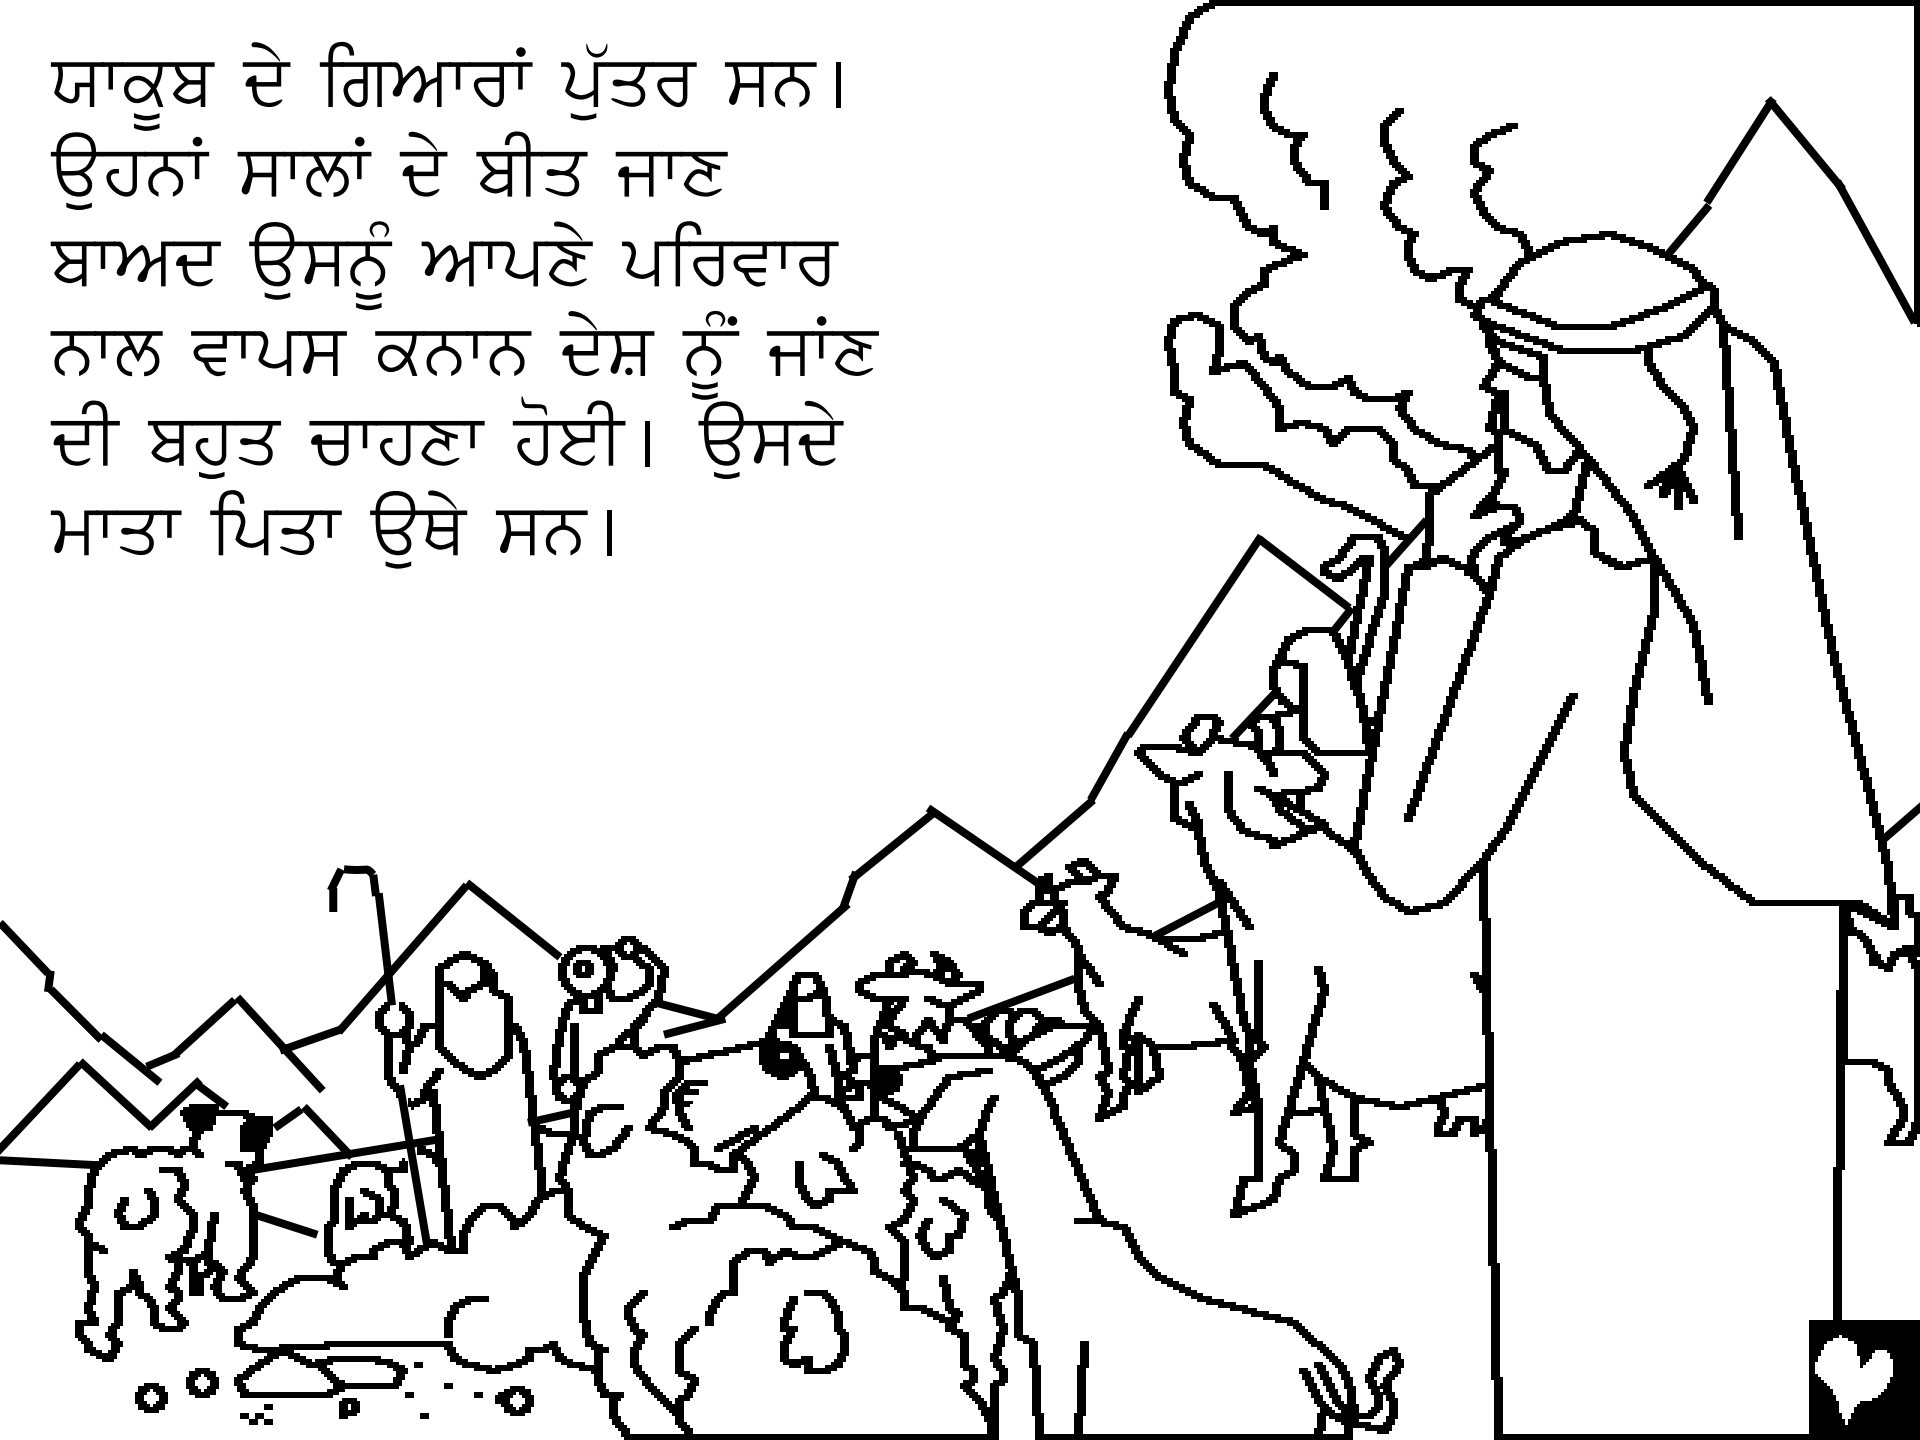 ਯਾਕੂਬ ਦੇ ਗਿਆਰਾਂ ਪੁੱਤਰ ਸਨ।
ਉਹਨਾਂ ਸਾਲਾਂ ਦੇ ਬੀਤ ਜਾਣ
ਬਾਅਦ ਉਸਨੂੰ ਆਪਣੇ ਪਰਿਵਾਰ
ਨਾਲ ਵਾਪਸ ਕਨਾਨ ਦੇਸ਼ ਨੂੰ ਜਾਂਣ
ਦੀ ਬਹੁਤ ਚਾਹਣਾ ਹੋਈ। ਉਸਦੇ
ਮਾਤਾ ਪਿਤਾ ਉਥੇ ਸਨ।